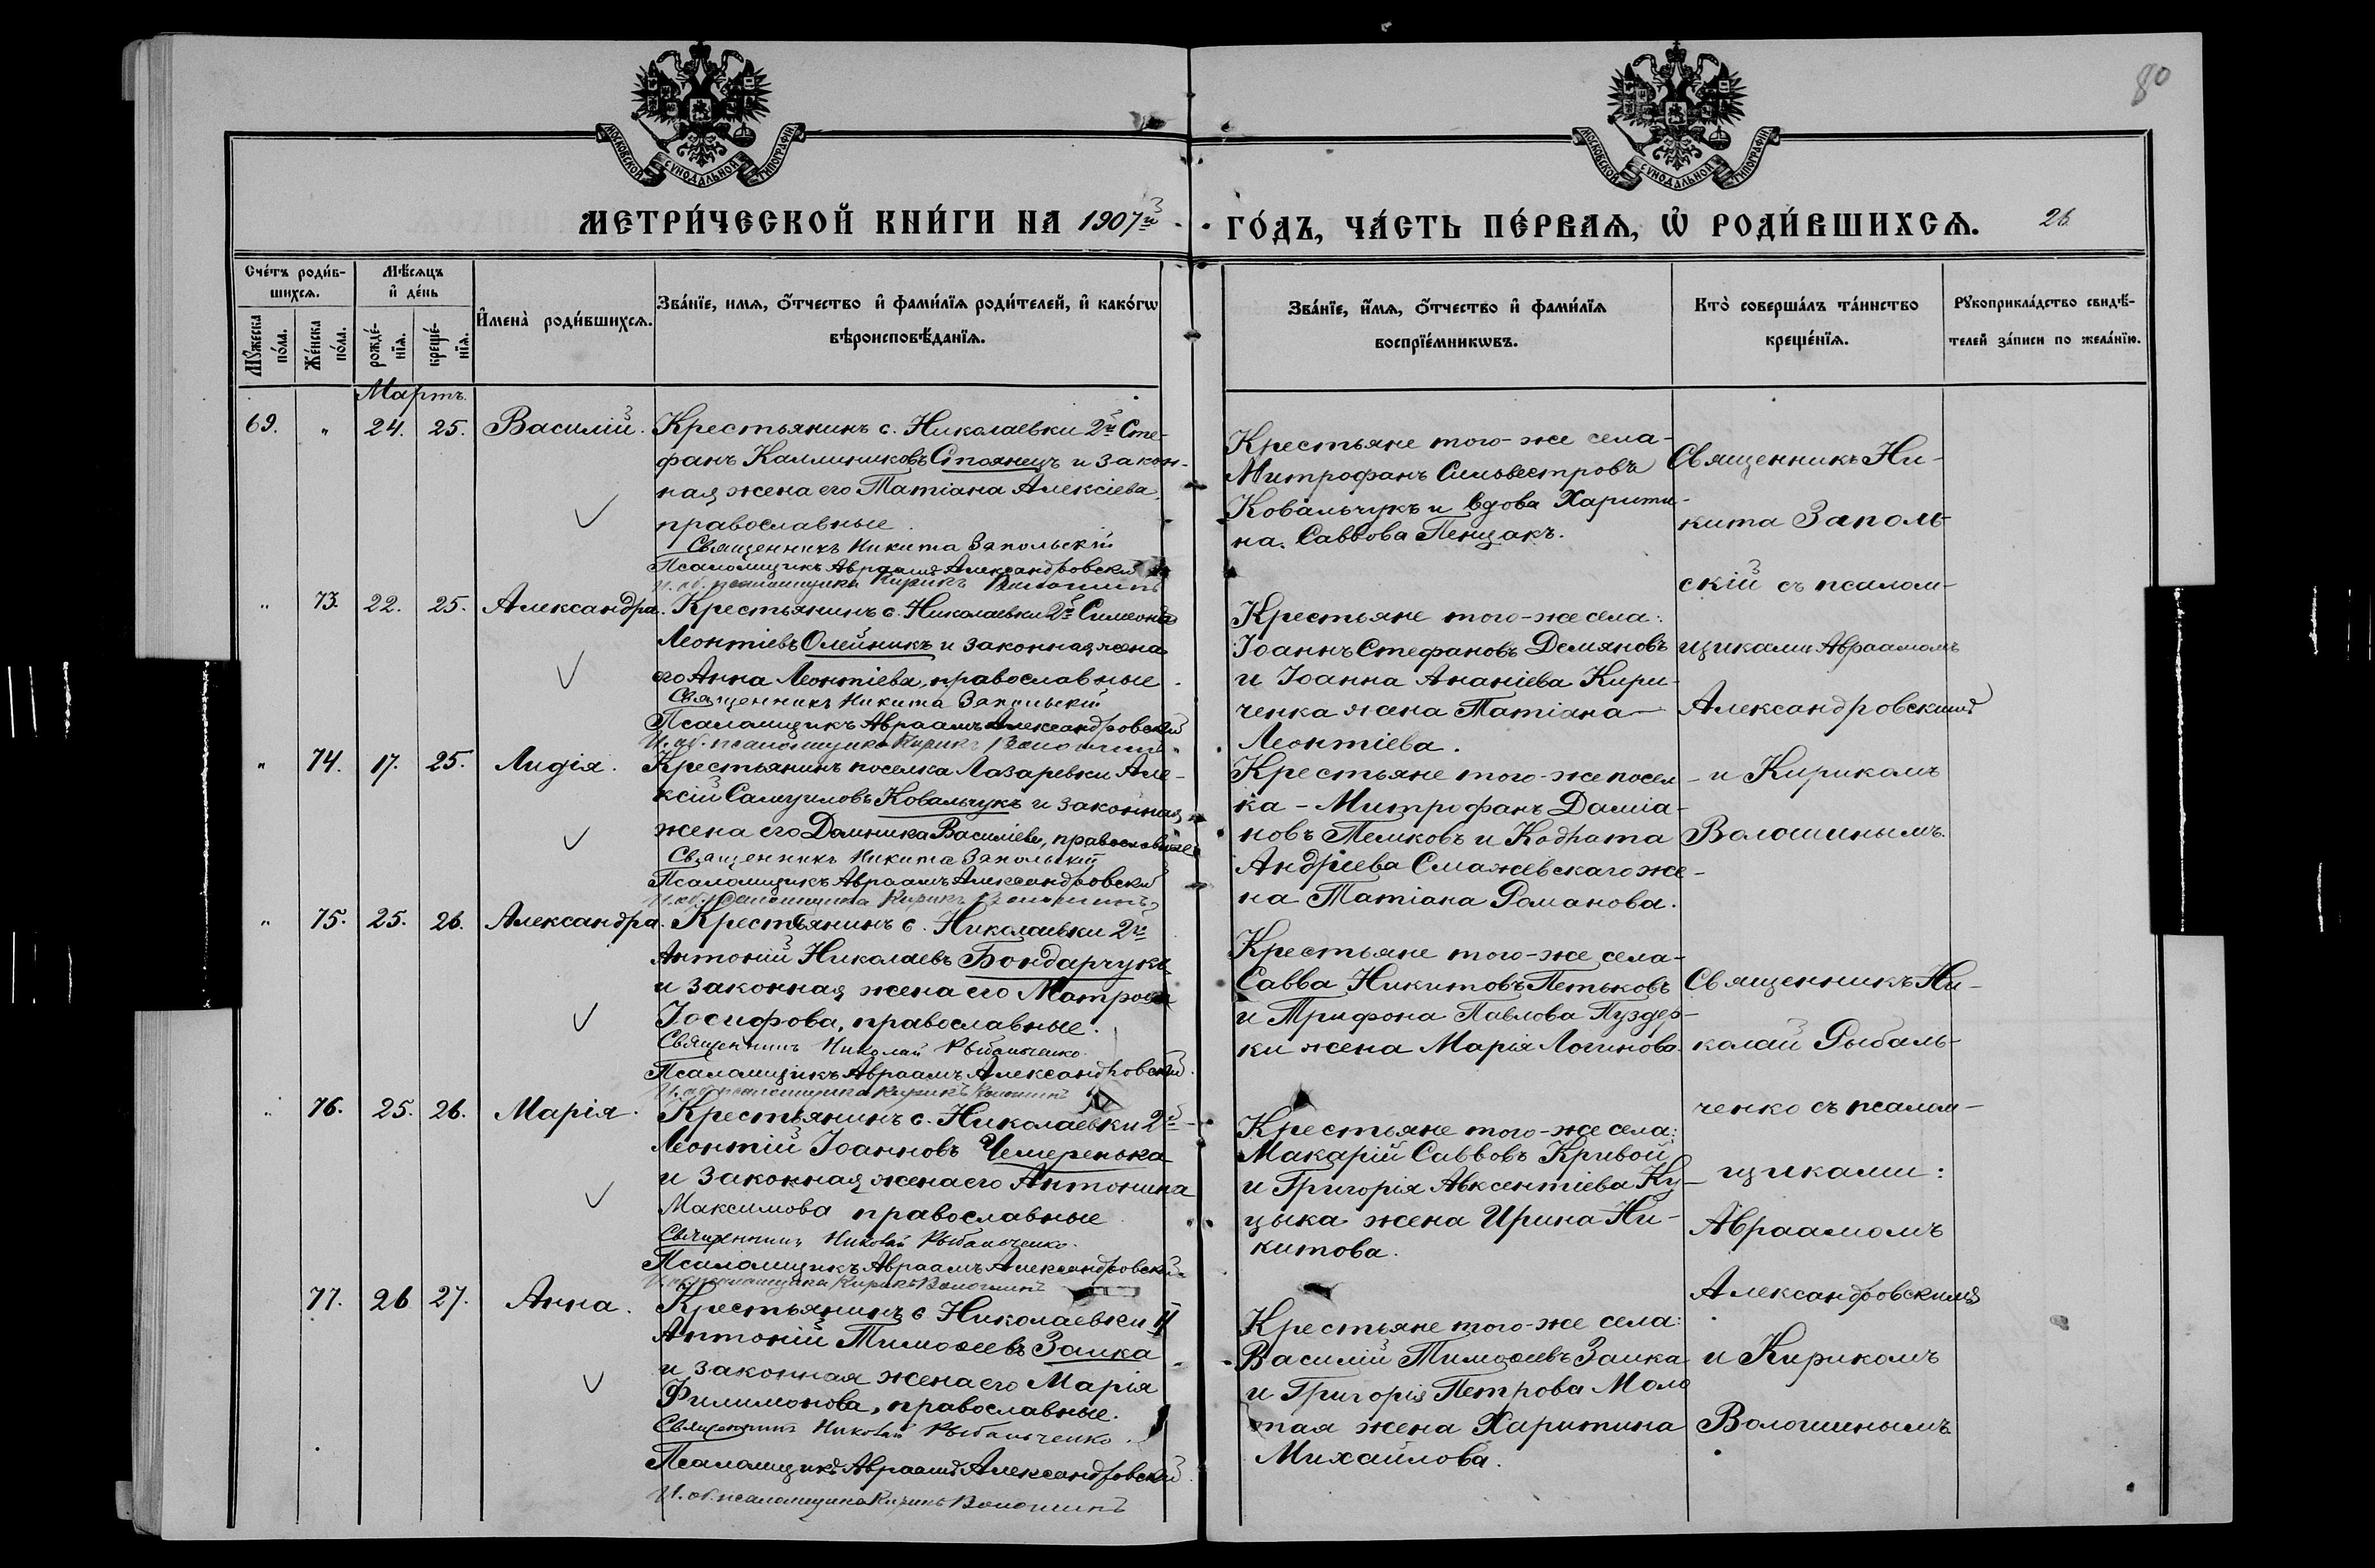 80
МОСКОВСКОЙ СѴНОДАЛЬНОЙ ТИПОГРАФІИ
МОСКОВСКОЙ СѴНОДАЛЬНОЙ ТИПОГРАФІИ
МЕТРИ́ЧЕСКОЙ КНИ́ГИ НА 1907й
ГО́ДЪ, ЧА́СТЬ ПЕ́РВАѦ, Ѡ҆ РОДИ́ВШИХСѦ. 26
Сче́тъ роди́в-
шихсѧ.
Мꙋ́жеска по́ла.
Же́нска по́ла.
Мѣ́сѧцъ
и҆ де́нь
рожде́-
нїѧ.
креще́-
нїѧ.
И҆мена̀ роди́вшихсѧ.
Зва́нїе, имѧ, о҆́тчество и҆ фами́лїѧ роди́телей, и҆ како́гѡ
вѣроисповѣ́данїѧ.
Зва́нїе, и҆́мѧ, о҆́тчество и҆ фами́лїѧ
воспрїе́мникѡвъ.
Кто̀ соверша́лъ та́инство
креще́нїѧ.
Рꙋкоприкла́дство свидѣ́-
телей за́писи по жела́нїю.
Мартъ.
69. " 24. 25. Василій.
Крестьянинъ с. Николаевки 2й Сте-
фанъ Каллиниковъ Стоянецъ и закон-
ная жена его Татіана Алексіева,
православные.
Священникъ Никита Запольскій
Псаломщикъ Авраамъ Александровскій
И. об. псаломщика Кирикъ Волошинъ
Крестьяне того-же села-
Митрофанъ Сильвестровъ
Ковальчукъ и вдова Харити-
на Саввова Пенцакъ.
" 73. 22. 25. Александра.
Крестьянинъ с. Николаевки 2й Симеонъ
Леонтіевъ Олейникъ и законная жена
его Анна Леонтіева, православные.
Священникъ Никита Запольскій
Псаломщикъ Авраамъ Александровскій
И. об. псаломщика Кирикъ Волошинъ
Крестьяне того-же села:
Іоаннъ Стефановъ Демяновъ
и Іоанна Ананіева Кири-
ченка жена Татіана
Леонтіева.
" 74. 17. 25. Лидія.
Крестьянинъ поселка Лазаревки Але-
ксій Самуиловъ Ковальчукъ и законная
жена его Домника Василіева, православные
Священникъ Никита Запольскій
Псаломщикъ Авраамъ Александровскій
И. об. псаломщика Кирикъ Волошинъ
Крестьяне того-же посел-
ка - Митрофанъ Даміа-
новъ Темковъ и Кодрата
Андріева Смажевскаго же-
на Татіана Романова.
Священникъ Ни-
кита Заполь-
скій съ псалом-
щиками Авраамомъ
Александровскимъ
и Кирикомъ
Волошинымъ.
" 75. 25. 26. Александра.
Крестьянинъ с. Николаевки 2й
Антоній Николаевъ Бондарчукъ
и законная жена его Матрона
Іосифова, православные.
Священникъ Николай Рыбальченко
Псаломщикъ Авраамъ Александровскій.
И. об. псаломщика Кирикъ Волошинъ
Крестьяне того-же села-
Савва Никитовъ Петьковъ
и Трифона Павлова Пуздер-
ки жена Марія Логинова.
" 76. 25. 26. Марія.
Крестьянинъ с. Николаевки 2й
Леонтій Іоанновъ Чемеренька
и законная жена его Антонина
Максимова православные
Священникъ Николай Рыбальченко.
Псаломщикъ Авраамъ Александровскій.
И. об. псаломщика Кирикъ Волошинъ
Крестьяне того-же села:
Макарій Саввовъ Кривой
и Григорія Авксентіева Ку-
цыка жена Ирина Ни-
китова.
77. 26 27. Анна.
Крестьянинъ с Николаевки II
Антоній Тимоѳеевъ Заика
и законная жена его Марія
Филимонова, православные.
Священникъ Николай Рыбальченко.
Псаломщикъ Авраамъ Александровскій.
И. об. псаломщика Кирикъ Волошинъ
Крестьяне того-же села:
Василій Тимоѳеевъ Заика
и Григорія Петрова Моло
тая жена Харитина
Михайлова.
Священникъ Ни-
колай Рыбаль-
ченко съ псалом-
щиками:
Авраамомъ
Александровскимъ
и Кирикомъ
Волошинымъ